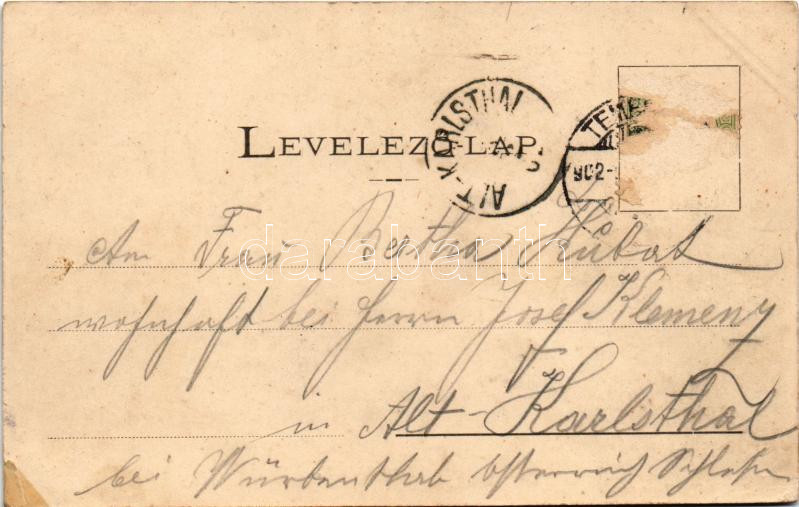 LEVELEZŐ-LAP.
ALT-KARLSTHAL
TEME
902-
An Frau Bertha Kubat
wohnhaft bei Herrn Josef Klement
in Alt-Karlsthal
bei Würbenthal Österreich Schlesien
darabanth